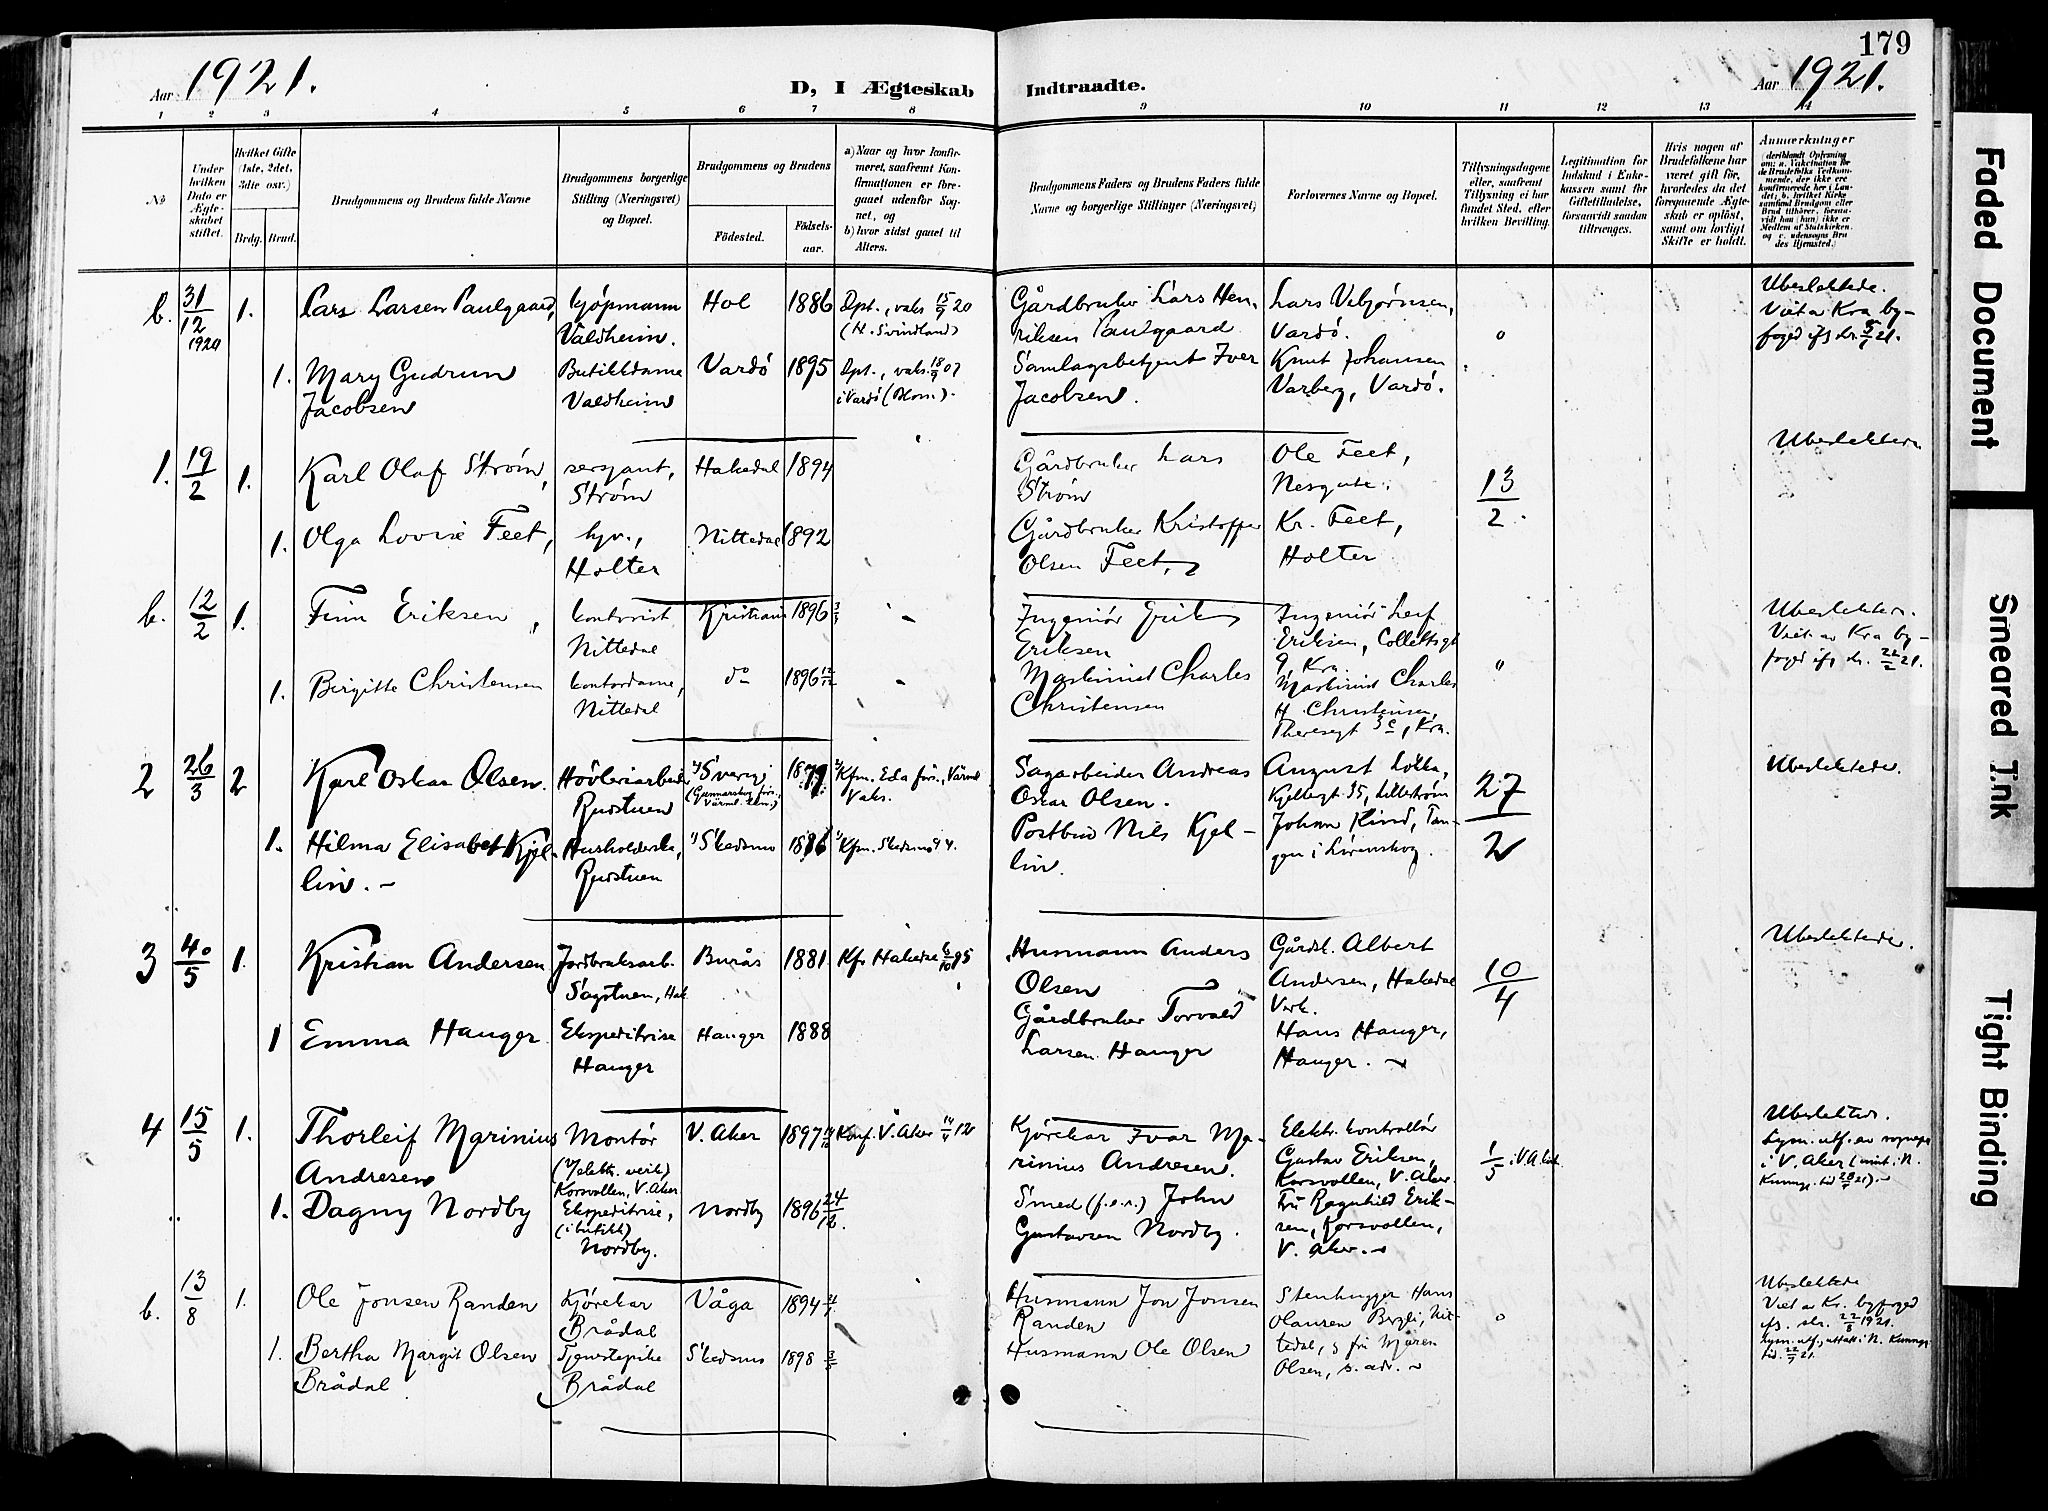 179
Aar 1921.
D, I Ægteskab Indtraadte.
Aar 1921.
1 2 3 4 5 6 7 8 9 10 11 12 13 14
No
Under hvilken Dato er Ægteskabet stiftet.
Hvilket Gifte (1ste, 2det, 3dte osv.)
Brdg. Brud.
Brudgommens og Brudens fulde Navne
Brudgommens borgerlige Stilling (Næringsvei) og Bopæl.
Brudgommens og Brudens
Fødested.
Fødselsaar.
a) Naar og hvor konfirmeret, saafremt Konfirmationen er foregaaet udenfor Sognet, og
b) hvor sidst gaaet til Alters.
Brudgommens Faders og Brudens Faders fulde Navne og borgerlige Stillinger (Næringsvei)
Forlovernes Navne og Bopæl.
Tillysningsdagene eller, saafremt Tillysning ei har fundet Sted, efter hvilken Bevilling.
Legitimation for Indskud i Enkekassen samt for Giftetilladelse, forsaavidt saadan tiltrænges.
Hvis nogen af Brudefolkene har været gift før, hvorledes da det foregaaende Ægteskab er opløst, samt om lovligt Skifte er holdt.
Anmærkninger
(deriblandt Oplysning om: a. Vakcination for de Brudefolks Vedkommende, der ikke ere konfirmerede her i Landet; b. hvilket Kirkesamfund Brudgom eller Brud tilhører, forsavidt han (hun) ikke er Medlem af Statskirken, og c. udensogns Brudes Hjemsted.)
b. 31/12 1920 1. Lars Larsen Paulgaard, kjøpmann Valdheim. Hol 1886 Dpt., vaks 15/9 20 (H. Svindland) Gårdbruker Lars Henriksen Paulgaard Lars Vebjørnsen, Vardø. " Ubeslektede. Viet av Kra byfoged ifg skr. 5/1 21.
1. Mary Gudrun Jacobsen Butikkdame Valdheim Vardø 1895 Dpt., vaks. 18/9 07 i Vardø (Blom.). Samlagsbetjent Iver Jacobsen. Knut Johansen Varberg, Vardø.
1. 19/2 1. Karl Olaf Strøm, sersjant, Strøm Hakedal 1894 Gårdbruker Lars Strøm Ole Feet, Nesgute. 13/2. Ubeslektede
1. Olga Lovise Feet, hjv., Holter Nittedal 1892 Gårdbruker Kristoffer Olsen Feet, Kr. Feet, Holter
b. 12/2 1. Finn Eriksen, kontorist Nittedal Kristiania 1896 " Ingeniør Erik Eriksen Ingeniør Leif Eriksen, Collettsgt 9, Kra. " Ubeslektede. Viet av Kra byfoged ifg skr. 22/2 21.
1. Birgitte Christensen kontordame, Nittedal do 1896 12/12 " Maskinist Charles Christensen Maskinist Charles H. Christensen, Theresegt 3c, Kra.
2 26/3 2 Karl Oskar Olsen. Høvleriarbeid. Rudstuen Sverig (Gunnarskog förs., Värml. län.) 1879 Kfm. Eda förs., Värml Vaks. Sagarbeider Andreas Oskar Olsen. August Lökka, Kjellergt 35, Lillestrøm 27/2 Ubeslektede.
1. Hilma Elisabet Kjellin. Husholderske, Rudstuen Skedsmo 1886 Kfm. Skedsmo Postbud Nils Kjellin. Johan Kind, Tangen i Lørenskog.
3 40/5 1. Kristian Andersen Jordbruksarb. Sagstuen, Hak. Burås 1881. Kf. Hakedal 6/10 95 Husmann Anders Olsen Gårdb. Albert Andersen, Hakedal Verk. 10/4 Ubeslektede.
1 Emma Hauger. Ekspeditrise Hauger Hauger 1888 Gårdbruker Torvald Larsen Hauger Hans Hauger, Hauger.
4 15/5 1. Thorleif Marinius Andresen Montør (v/elektr. verk) Korsvollen, V. Aker V. Aker 1897 Konf. V. Aker 14/4 12 Kjørekar Ivar Marinius Andresen. Elektr. kontrollør Gustav Eriksen, Korsvollen, V. Aker. 1/5 i V. Aker. Ubeslektede. Lysn. utf. av sognepr. i V. Aker
1. Dagny Nordby Ekspeditrise, (i butikk) Nordby. Nordby 1896 24/12. Smed (f.e.n.) John Gustavsen Nordby. Fru Ragnhild Eriksen, Korsvollen, V. Aker.
b. 13/8 1. Ole Jonsen Randen Kjørekar Brådal Våga 1894 Husmann Jon Jonsen Randen Stenhugger Hans Olausen Bergli, Nittedal, " Ubeslektede Viet av Kr. byfoged ifg. skr. 22/8 1921.
1. Bertha Margit Olsen Brådal Tjenestepike Brådal Skedsmo 1898 Husmann Ole Olsen fru Maren Olsen, s. adr.
Faded Document
Smeared Ink
Tight Binding